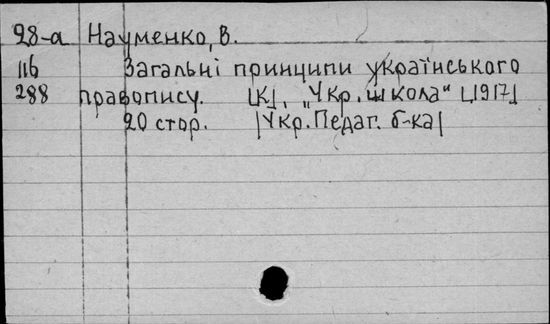 28-а Науменко, В.
116 Загальні принципи українського
288 правопису. [К], „Укр. школа“ [1917]
20 стор. |Укр. Педаг. б-ка|